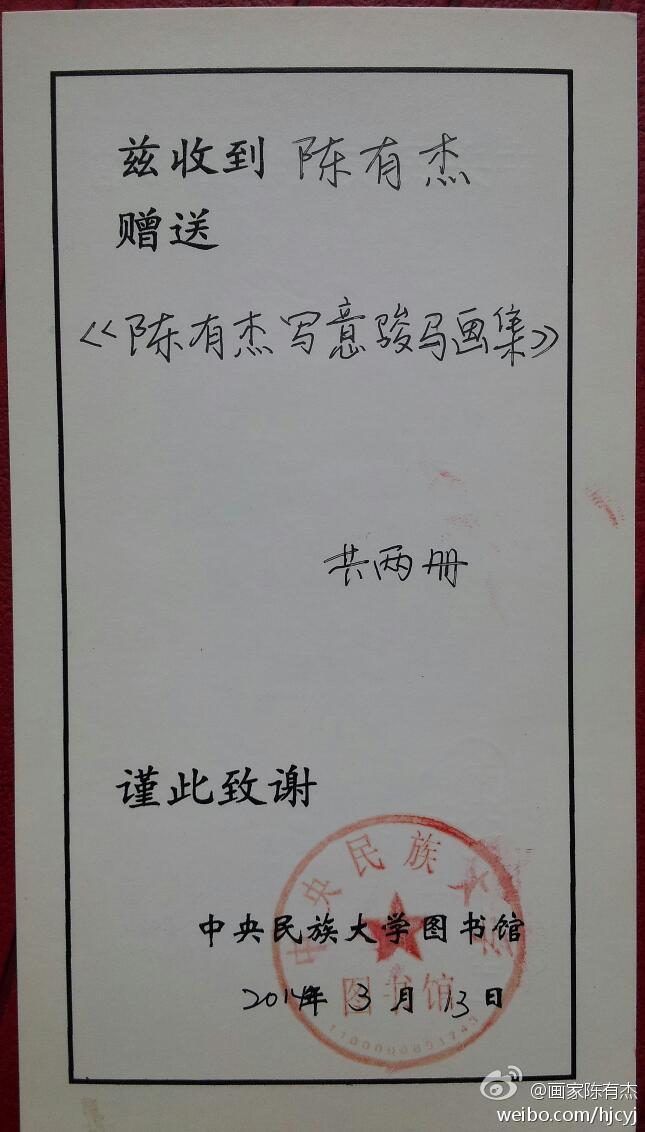 兹收到 陈有杰
赠送
《陈有杰写意骏马画集》
共两册
谨此致谢
中央民族大学
中央民族大学图书馆
图书馆
2014年 3 月 13 日
@画家陈有杰
weibo.com/hjcyj